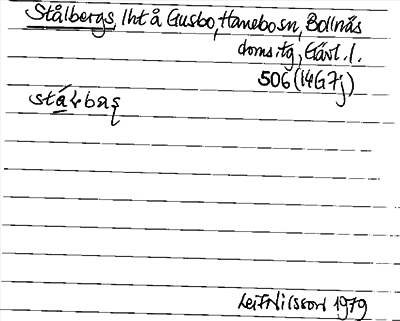 Stålbergs, lht å Gusbo, Hanebo sn, Bollnäs
domsag, Gävl. l.
506 (14G7j)
Leif Nilsson 1979